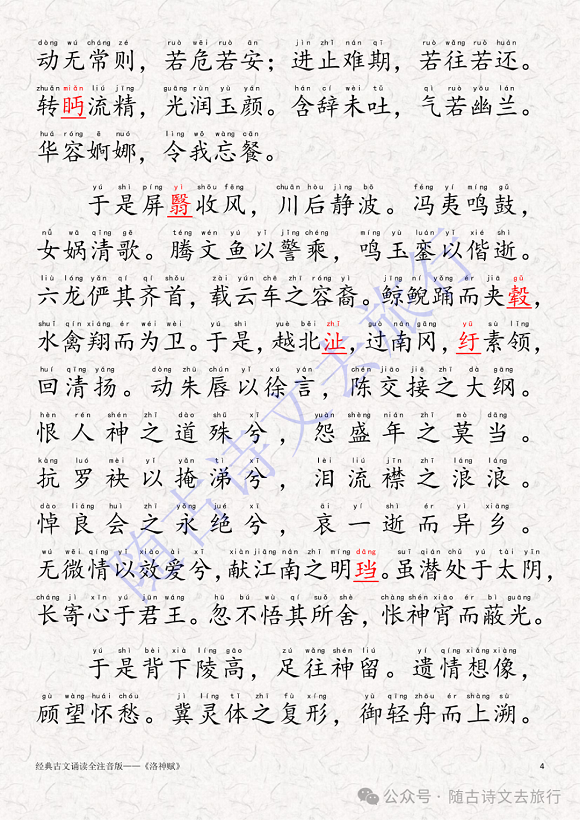 dòng wú cháng zé ruò wēi ruò ān jìn zhǐ nán qī ruò wǎng ruò huán
动无常则，若危若安；进止难期，若往若还。
zhuǎn miǎn liú jīng guāng rùn yù yán hán cí wèi tǔ qì ruò yōu lán
转眄流精，光润玉颜。含辞未吐，气若幽兰。
huá róng ē nuó lìng wǒ wàng cān
华容婀娜，令我忘餐。
yú shì píng yì shōu fēng chuān hòu jìng bō féng yí míng gǔ
于是屏翳收风，川后静波。冯夷鸣鼓，
nǚ wā qīng gē téng wén yú yǐ jǐng chéng míng yù luán yǐ xié shì
女娲清歌。腾文鱼以警乘，鸣玉銮以偕逝。
liù lóng yǎn qí qí shǒu zài yún chē zhī róng yì jīng ní yǒng ér jiā gǔ
六龙俨其齐首，载云车之容裔。鲸鲵踊而夹毂，
shuǐ qín xiáng ér wéi wèi yú shì yuè běi zhǐ guò nán gāng yū sù lǐng
水禽翔而为卫。于是，越北沚，过南冈，纡素领，
huí qīng yáng dòng zhū chún yǐ xú yán chén jiāo jiē zhī dà gāng
回清扬。动朱唇以徐言，陈交接之大纲。
hèn rén shén zhī dào shū xī yuàn shèng nián zhī mò dāng
恨人神之道殊兮，怨盛年之莫当。
kàng luó mèi yǐ yǎn tì xī lèi liú jīn zhī láng láng
抗罗袂以掩涕兮，泪流襟之浪浪。
dào liáng huì zhī yǒng jué xī āi yí shì ér yì xiāng
悼良会之永绝兮，哀一逝而异乡。
wú wēi qíng yǐ xiào ài xī xiàn jiāng nán zhī míng dāng suī qián chǔ yú tài yīn
无微情以效爱兮，献江南之明珰。虽潜处于太阴，
cháng jì xīn yú jūn wáng hū bú wù qí suǒ shě chàng shén xiāo ér bì guāng
长寄心于君王。忽不悟其所舍，怅神宵而蔽光。
yú shì bèi xià líng gāo zú wǎng shén liú yí qíng xiǎng xiàng
于是背下陵高，足往神留。遗情想像，
gù wàng huái chóu jì líng tǐ zhī fù xíng yù qīng zhōu ér shàng sù
顾望怀愁。冀灵体之复形，御轻舟而上溯。
随古诗文去旅行
经典古文诵读全注音版——《洛神赋》 4
公众号 · 随古诗文去旅行